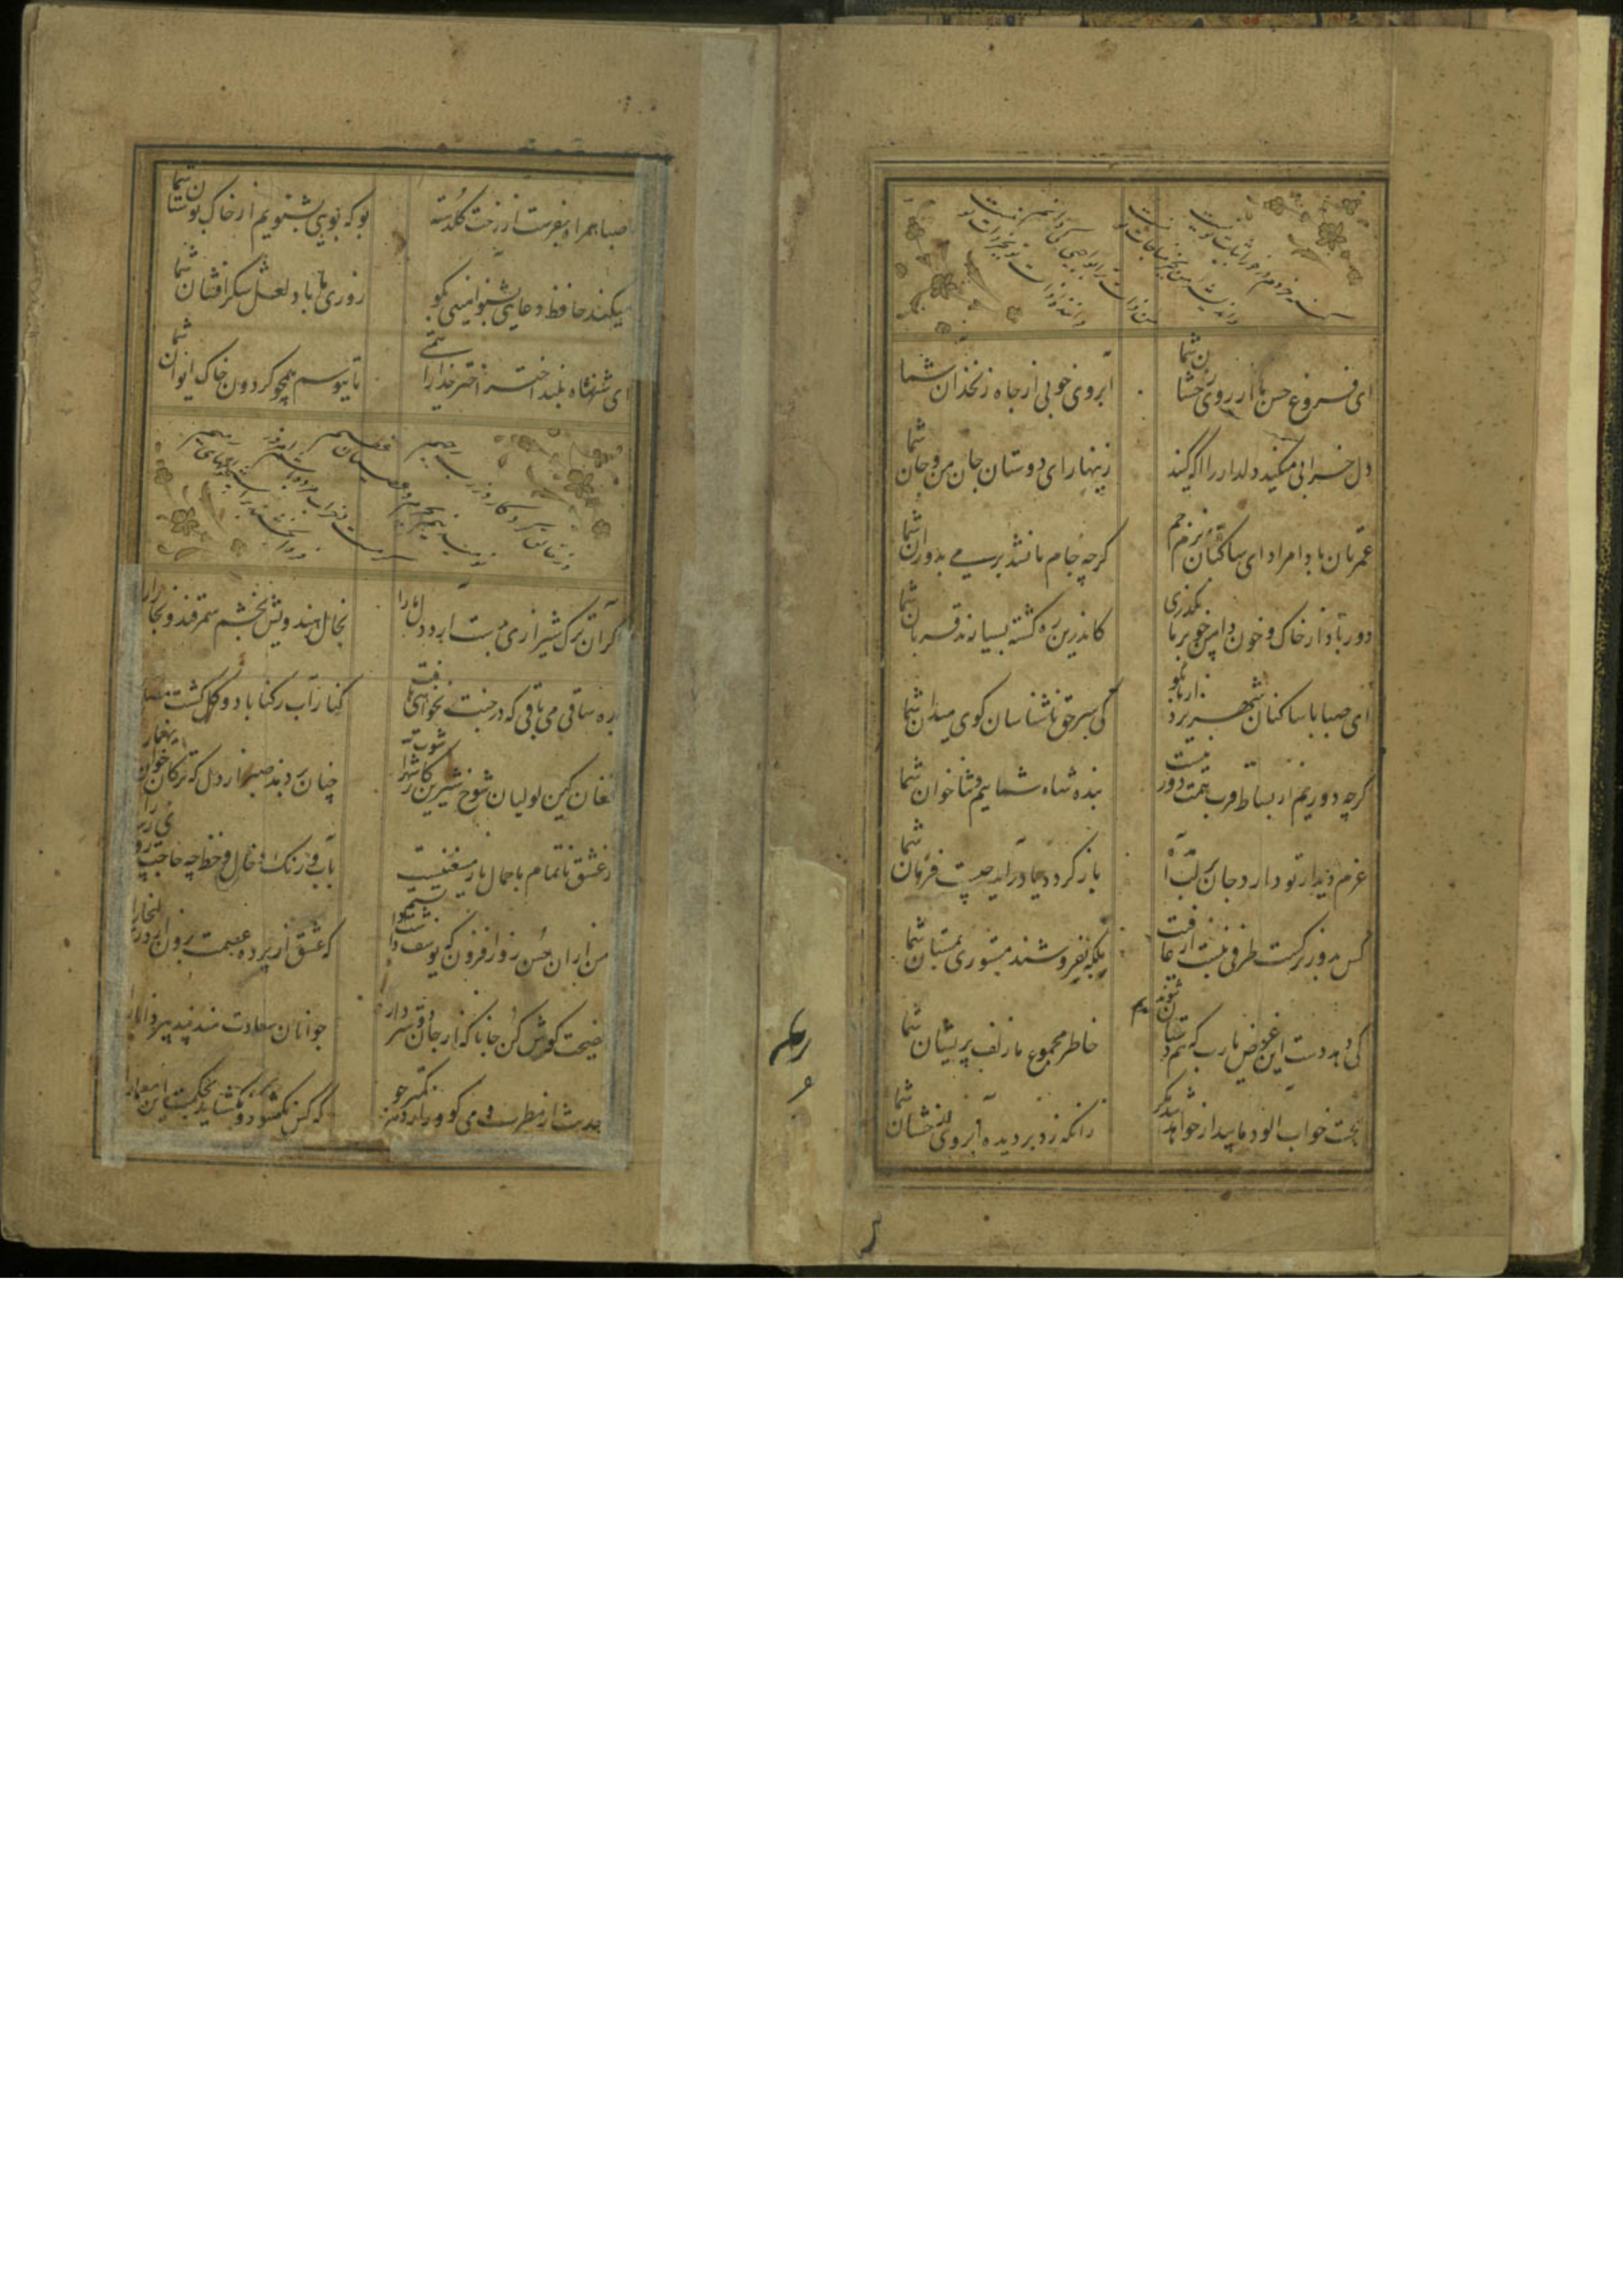 ای فروغ حسن ماه از روی رخشان شما
آبروی خوبی از چاه زنخدان شما
دل خرابی میکند دلدار را اکه کنید
زینهار ای دوستان جان من و جان شما
عمرتان باد امراد ای ساکنان بزم جم
کرچه جام ما نشد پر می بدوران شما
دور باد از خاک و خون دامن چو بر ما بکذری
کاندرین ره کشته بسیارند قربان شما
ای صبا با ساکنان شهر یزد از ما بکو
کی سر حق ناشناسان کوی میدان شما
کرچه دوریم از بساط قرب همت دور نیست
بنده شاه شماییم و ثناخوان شما
عزم دیدار تو دارد جان بر لب آمده
باز کردد یا درآید چیست فرمان شما
کس بدور نرکست طرفی نبست از عافیت
به که نفروشند مستوری بمستان شما
کی دهد دست این غرض یارب که همدستان شوند
خاطر مجموع ما زلف پریشان شما
بخت خواب الود ما بیدار خواهد شد مکر
زانکه زد بر دیده آبروی رخشان شما
صبا همراه بفرست از رخت کلدسته
بو که بویی بشنویم از خاک بوستان شما
میکند حافظ دعایی بشنو آمینی بکو
روزی ما باد لعل شکرافشان شما
ای شهنشاه بلند اختر خدا را همتی
تا ببوسم همچو کردون خاک ایوان شما
اکر آن ترک شیرازی بدست آرد دل ما را
بخال هندویش بخشم سمرقند و بخارا را
بده ساقی می باقی که در جنت نخواهی یافت
کنار آب رکناباد و کلکشت مصلا
فغان کین لولیان شوخ شیرین کار شهرآشوب
چنان بردند صبر از دل که ترکان خوان یغما را
ز عشق ناتمام ما جمال یار مستغنیست
بآب و رنک و خال و خط چه حاجت روی زیبا را
من از آن حسن روز افزون که یوسف داشت دانستم
که عشق از پرده عصمت برون آرد زلیخا را
نصیحت کوش کن جانا که از جان دوست‌تر دارند
جوانان سعادت مند پند پیر دانا را
حدیث از مطرب و می کو و راز دهر کمتر جو
که کس نکشود و نکشاید بحکمت این معما را